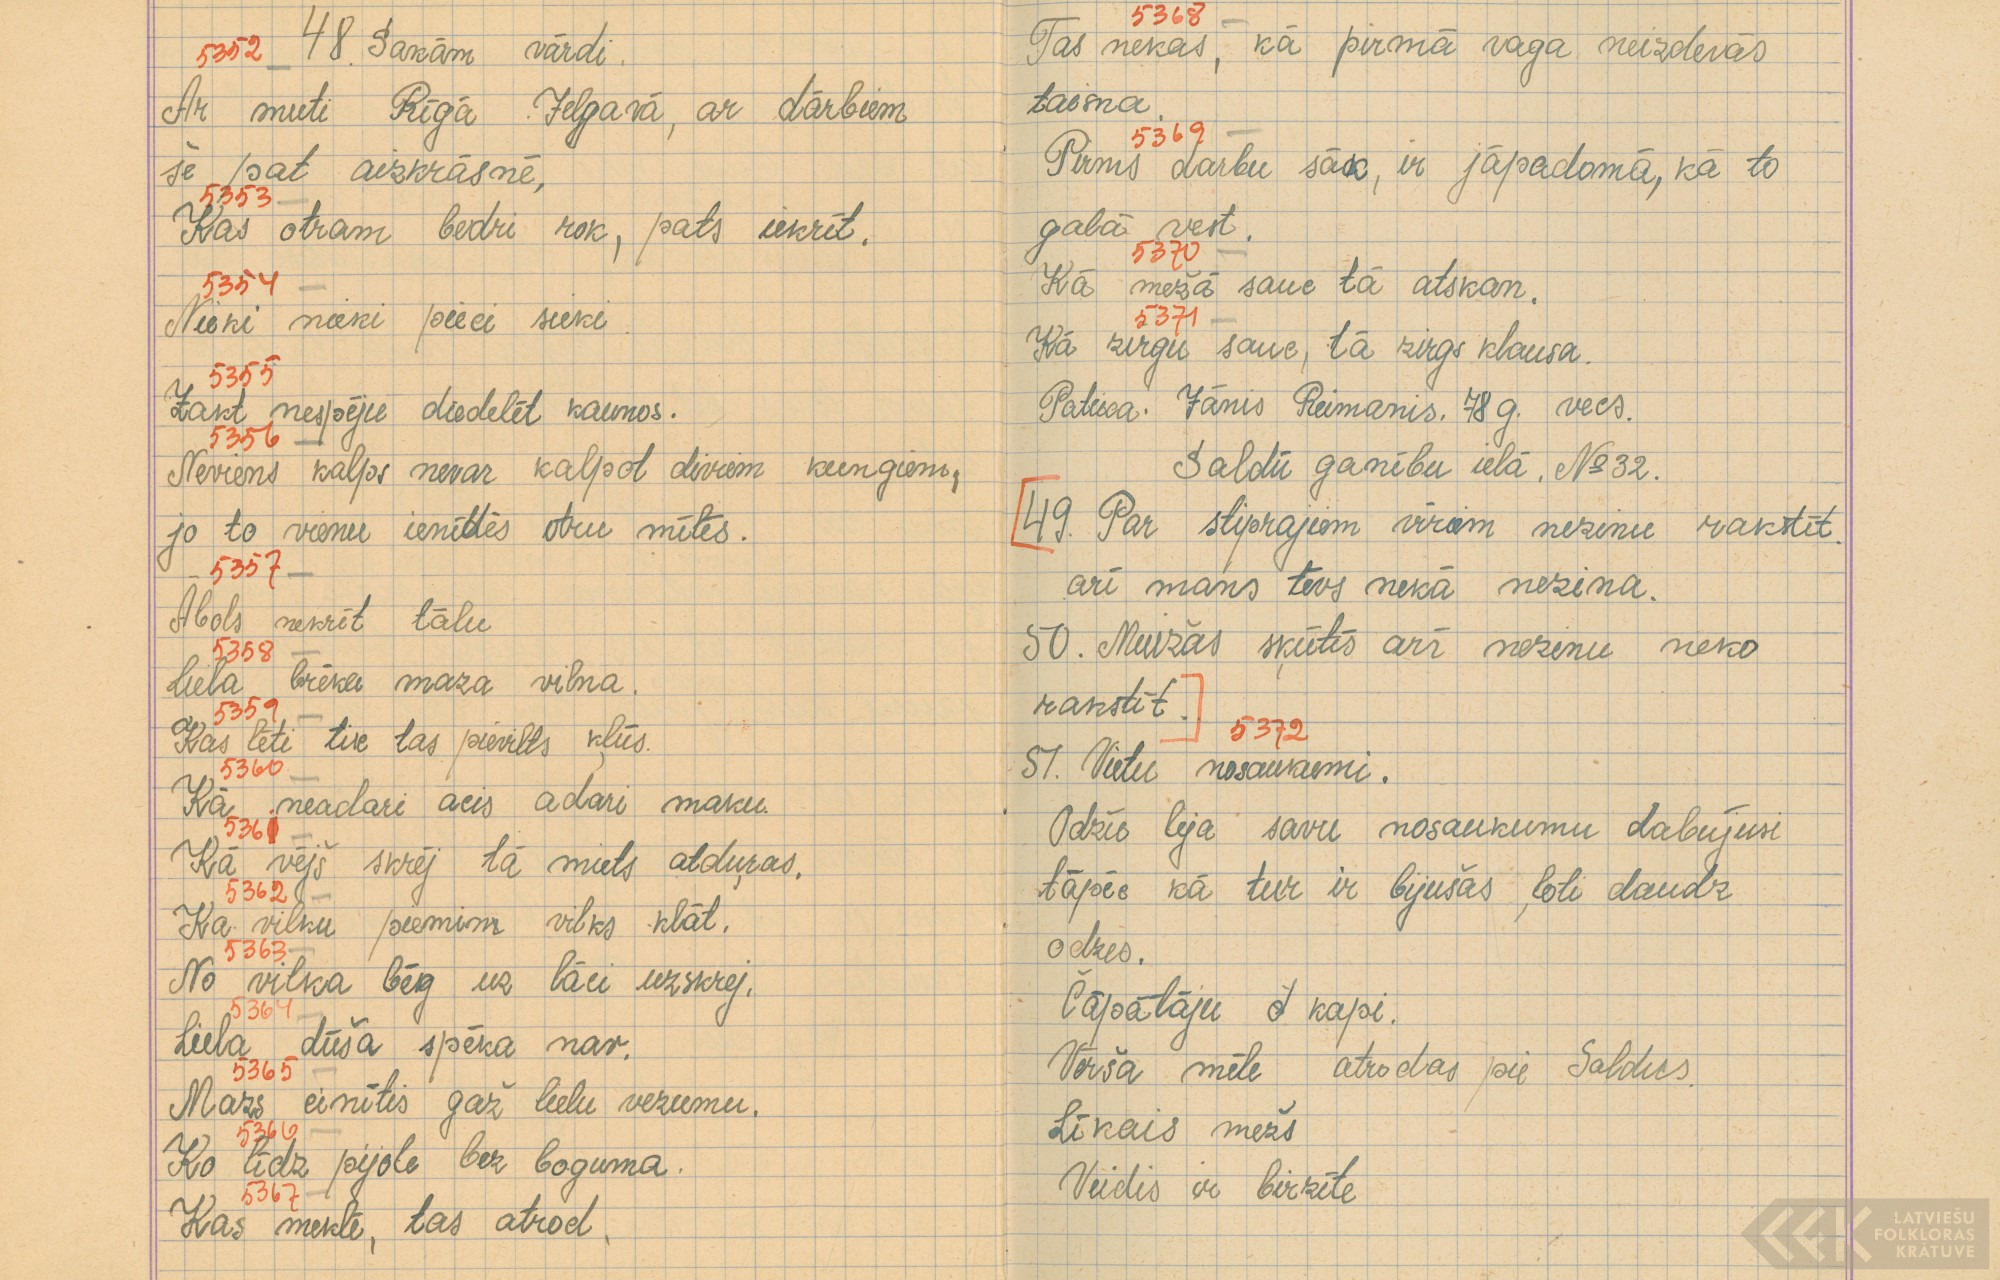 5352 48. Sakām vārdi.
Ar muti Rīgā Jelgavā, ar dārbiem
šē pat aizkrāsnē,
5353
Kas otram bedri rok, pats iekrīt.
5354
Nieki nieki pieci sieki.
5355
Zakt nespēju diedelēt kaunos.
5356
Neviens kalps nevar kalpot diviem kungiem,
jo to vienu ienīdēs otru mīlēs.
5357
Ābols nekrīt tālu
5358
Liela brēka maza vilna.
5359
Kas lēti tic tas pievilts kļūs.
5360
Kā neadari acis adari maku.
5361
Kā vējš skrēj tā miets atduŗas.
5362
Ka vilku piemin vilks klāt.
5363
No vilka bēg uz lāci uzskrej.
5364
Liela dūša spēka nav.
5365
Mazs cinītis gāž lielu vezumu.
5366
Ko līdz pijole bez boguma.
5367
Kas meklē, tas atrod.
5368
Tas nekas, kā pirmā vaga neizdevās
taisna.
5369
Pirms darbu sāk, ir jāpadomā, kā to
galā vest.
5370
Kā mežā sauc tā atskan.
5371
Kā zirgu sauc, tā zirgs klausa.
Pateica. Jānis Reimanis. 78 g. vecs.
Saldū ganību ielā. № 32.
49. Par stiprajiem vīriem nezinu rakstīt.
arī mans tēvs nekā nezina.
50. Muižās šķūtīs arī nezinu neko
rakstīt.
5372
51. Vietu nosaukumi.
Odžu leja savu nosaukumu dabūjusi
tāpēc kā tur ir bijušās ļoti daudz
odzes.
Čāpātāju kapi.
Vērša mēle atrodas pie Saldus.
Līkais mežs
Veidis ir birzīte
LATVIEŠU
FOLKLORAS
KRĀTUVE